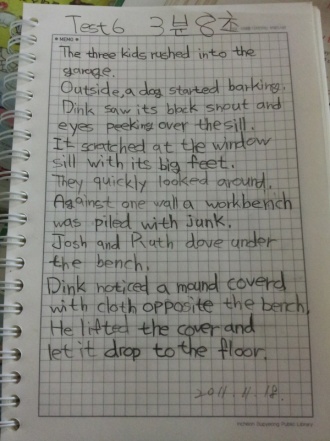 Test 6 3분 8초
MEMO
The three kids rushed into the
garage.
Outside, a dog started barking.
Dink saw its black snout and
eyes peeking over the sill.
It scratched at the window
sill with its big feet.
They quickly looked around.
Against one wall a workbench
was piled with junk.
Josh and Ruth dove under
the bench.
Dink noticed a mound coverd
with cloth opposite the bench.
He lifted the cover and
let it drop to the floor.
2011.11.18.